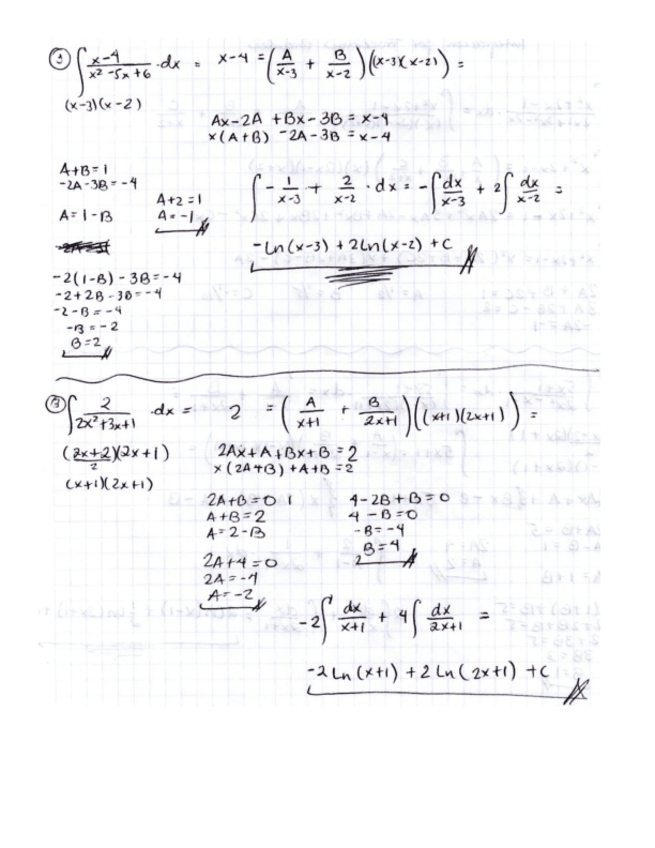 3) ∫ x-4 / x² -5x+6 · dx = x-4 = ( A / x-3 + B / x-2 ) ((x-3)(x-2) =
(x-3)(x-2)
Ax-2A +Bx-3B = x-4
x(A+B) -2A-3B = x-4
A+B=1
-2A-3B=-4
A=1-B
A+2=1
A=-1
∫ - 1 / x-3 + 2 / x-2 · dx = -∫ dx / x-3 + 2∫ dx / x-2 =
-Ln(x-3) + 2Ln(x-2) +C
-2(1-B) -3B=-4
-2+2B-3B=-4
-2-B=-4
-B=-2
B=2
∫ 2 / 2x²+3x+1 · dx = 2 = ( A / x+1 + B / 2x+1 ) ((x+1)(2x+1) =
(2x+2)(2x+1) / 2
(x+1)(2x+1)
2Ax+A+Bx+B=2
x(2A+B)+A+B=2
2A+B=0
A+B=2
A=2-B
2A+4=0
2A=-4
A=-2
4-2B+B=0
4-B=0
-B=-4
B=4
-2∫ dx / x+1 + 4∫ dx / 2x+1 =
-2Ln(x+1) +2Ln(2x+1) +C